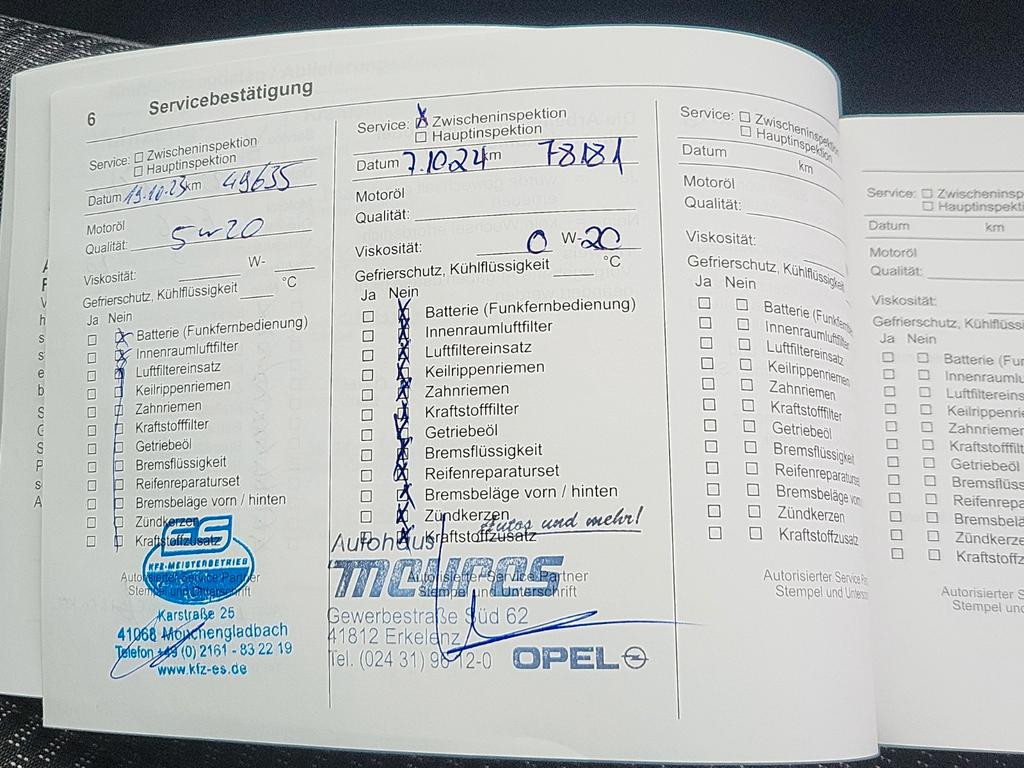 6 Servicebestätigung
Service: ☐ Zwischeninspektion
☐ Hauptinspektion
Datum 19.10.23 km 49635
Motoröl
Qualität: 5w20
Viskosität: W-
Gefrierschutz, Kühlflüssigkeit °C
Ja Nein
Batterie (Funkfernbedienung)
Innenraumluftfilter
Luftfiltereinsatz
Keilrippenriemen
Zahnriemen
Kraftstofffilter
Getriebeöl
Bremsflüssigkeit
Reifenreparaturset
Bremsbeläge vorn / hinten
Zündkerzen
Kraftstoffzusatz
ES
KFZ-MEISTERBETRIEB
Autorisierter Service Partner
Stempel und Unterschrift
Karstraße 25
41068 Mönchengladbach
Telefon +49 (0) 2161 - 83 22 19
www.kfz-es.de
Service: ☒ Zwischeninspektion
☐ Hauptinspektion
Datum 7.10.24 km 78181
Motoröl
Qualität:
Viskosität: 0 W-20
Gefrierschutz, Kühlflüssigkeit °C
Ja Nein
Batterie (Funkfernbedienung)
Innenraumluftfilter
Luftfiltereinsatz
Keilrippenriemen
Zahnriemen
Kraftstofffilter
Getriebeöl
Bremsflüssigkeit
Reifenreparaturset
Bremsbeläge vorn / hinten
Zündkerzen
Kraftstoffzusatz
Autos und mehr!
Autohaus
Autorisierter Service Partner
Stempel und Unterschrift
Gewerbestraße Süd 62
41812 Erkelenz
Tel. (024 31) 96 12-0 OPEL
Service: ☐ Zwischeninspektion
☐ Hauptinspektion
Datum km
Motoröl
Qualität:
Viskosität:
Gefrierschutz, Kühlflüssigkeit
Ja Nein
Batterie (Funkfernbe
Innenraumluftfilter
Luftfiltereinsatz
Keilrippenriemen
Zahnriemen
Kraftstofffilter
Getriebeöl
Bremsflüssigkeit
Reifenreparaturse
Bremsbeläge vorn
Zündkerzen
Kraftstoffzusatz
Autorisierter Service Pa
Stempel und Unterschr
Service: ☐ Zwischeninsp
☐ Hauptinspekt
Datum km
Motoröl
Qualität:
Viskosität:
Gefrierschutz, Kühlflüss
Ja Nein
Batterie (Fun
Innenraumlu
Luftfiltereins
Keilrippenri
Zahnriemen
Kraftstofffilt
Getriebeöl
Bremsflüss
Reifenrepa
Bremsbelä
Zündkerze
Kraftstoffz
Autorisierter S
Stempel und